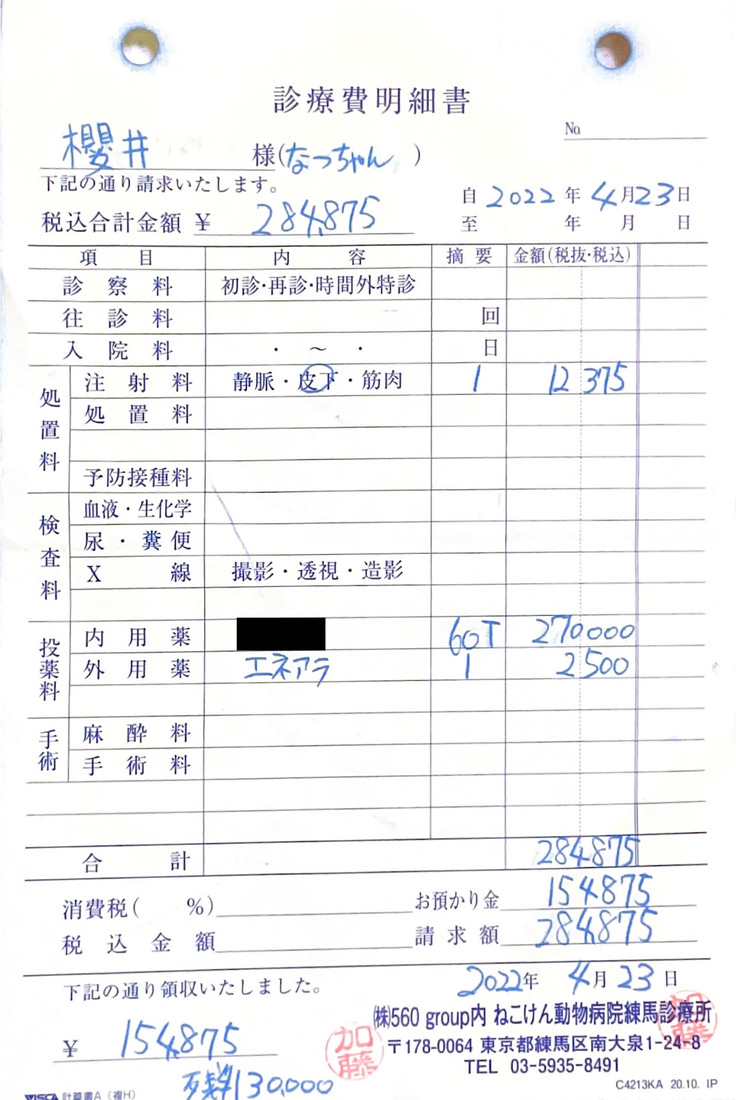 診療費明細書
No.
櫻井 様(なっちゃん )
下記の通り請求いたします。
自 2022 年 4 月 23 日
税込合計金額 ¥ 284,875
至 年 月 日
項目 内容 摘要 金額(税抜・税込)
診察料 初診・再診・時間外特診
往診料 回
入院料 ・ ～ ・ 日
処置料
注射料 静脈・皮下・筋肉 1 12 375
処置料
予防接種料
検査料
血液・生化学
尿・糞便
X線 撮影・透視・造影
投薬料
内用薬 60T 270000
外用薬 エネアラ 1 2500
手術
麻酔料
手術料
合計 284,875
消費税( %) お預かり金 154875
税込金額 請求額 284,875
下記の通り領収いたしました。 2022年 4月 23日
¥ 154,875
加藤
加藤
(株)560 group内 ねこけん動物病院練馬診療所
〒178-0064 東京都練馬区南大泉1-24-8
TEL 03-5935-8491
残 130,000
VISCA 計算書A(複H)
C4213KA 20.10. IP